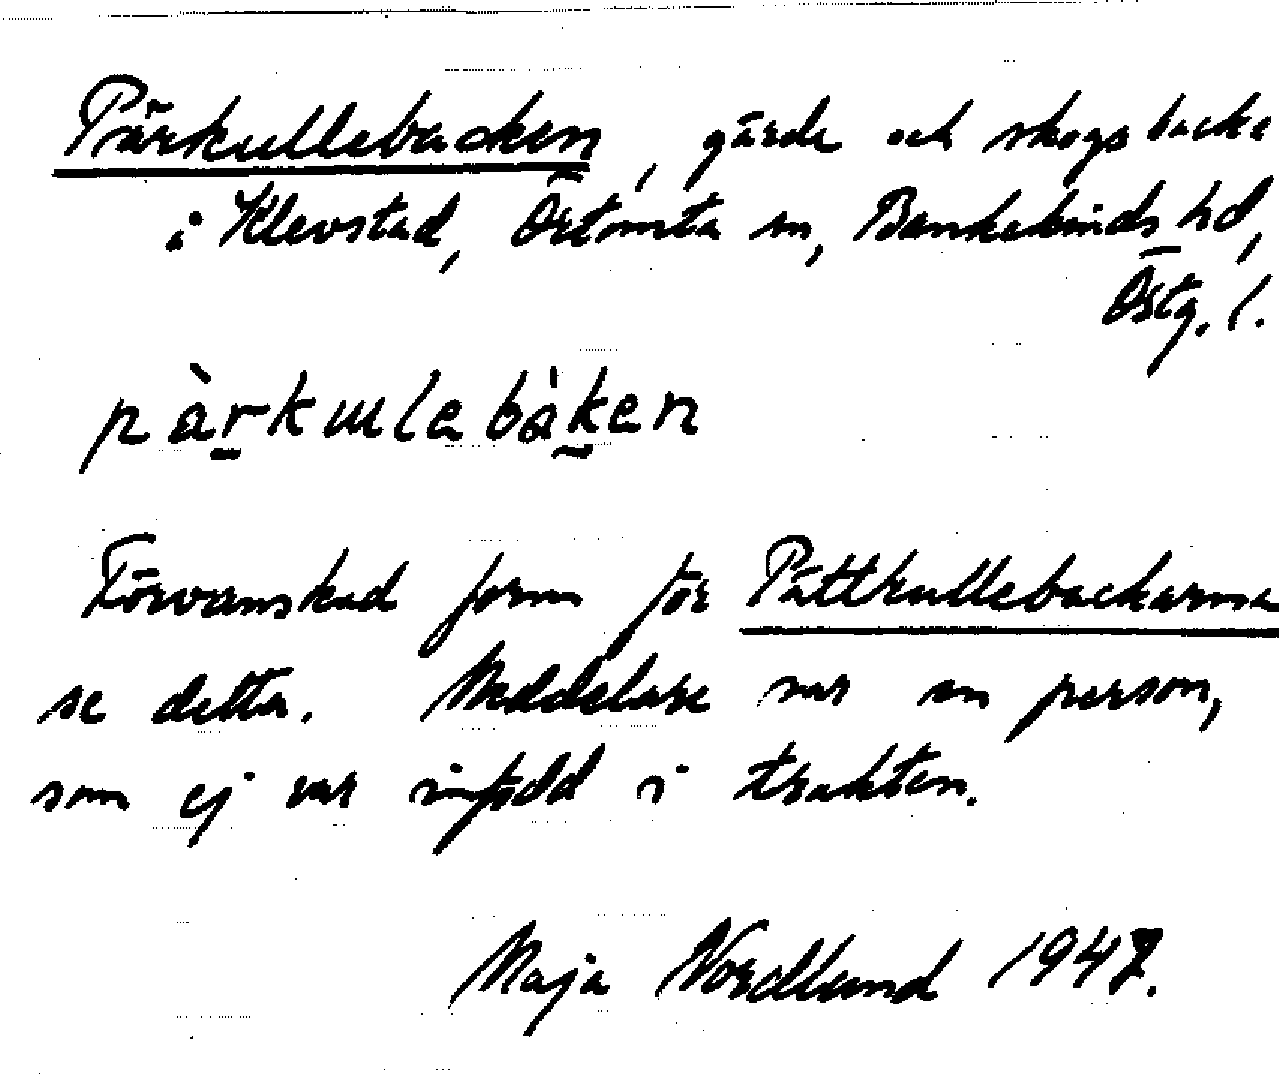 Pärkullebacken, gärde och skogsbacke
i Klevstad, Östomta sn, Bankekinds hd,
Östg. l.
pàrkulebàken
Förvanskad form för Pättkullebackarna
se detta. Meddelare var en person,
som ej var infödd i trakten.
Maja Nordlund 1947.